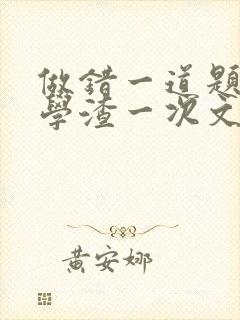 做錯一道題
學渣一次文
黃安娜